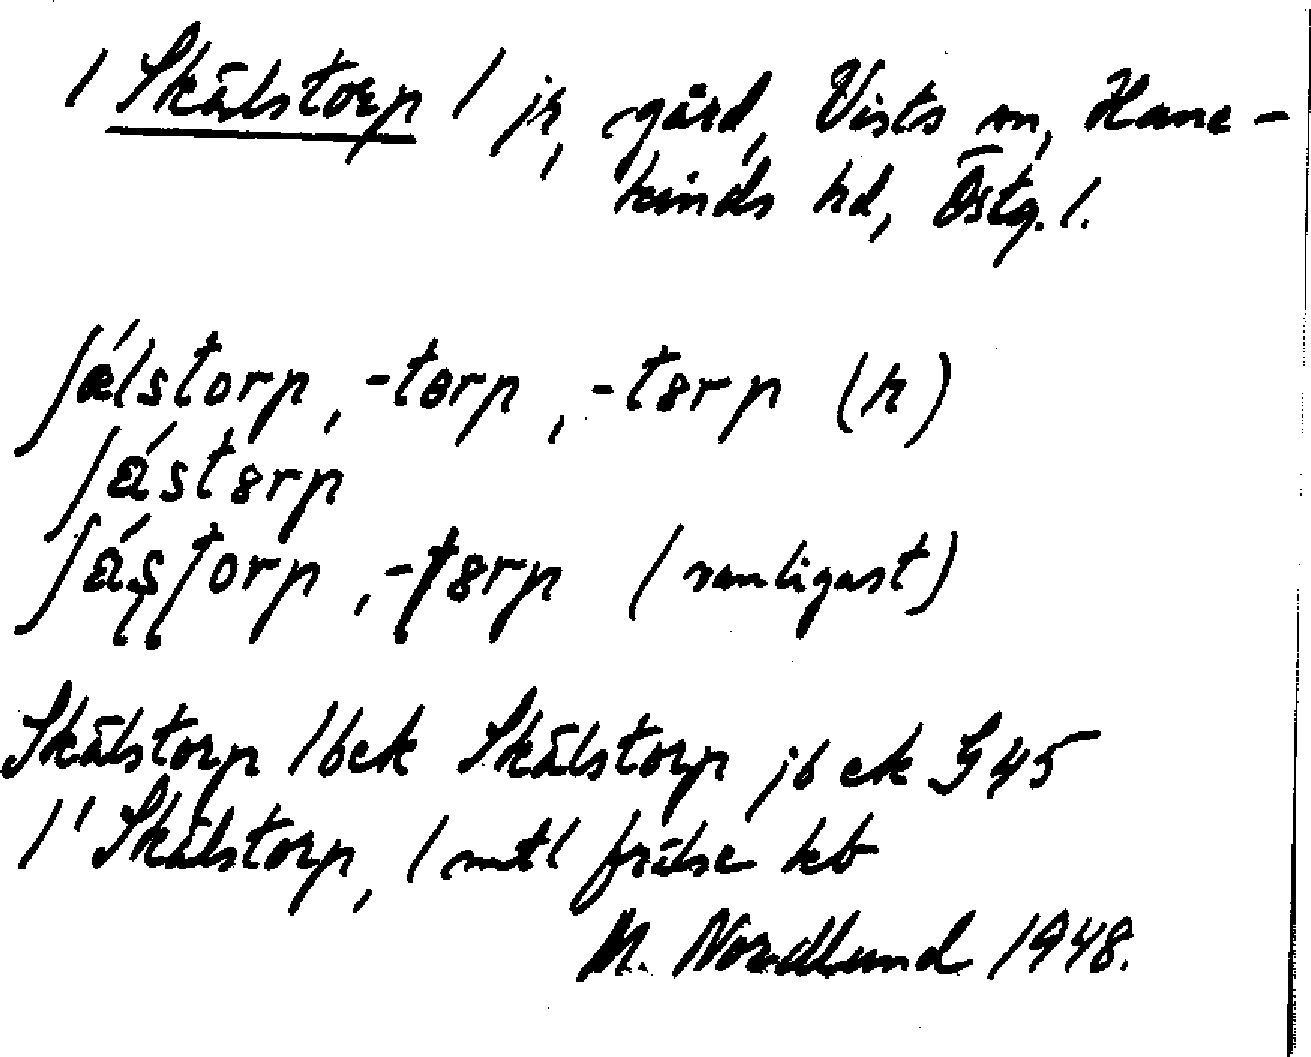 1 Skälstorp 1 jr, gård, Vists sn, Hane-
kinds hd, Östg. l.
ʃǽlstorp, -tɵrp, -t8rp (h)
ʃǽst8rp
ʃǽʂʈorp, -ʈ8rp (vanligast)
Skälstorp 1bek Skälstorp jb ek G45
1/1 Skälstorp, 1 mtl frälse kb
M. Nordlund 1948.